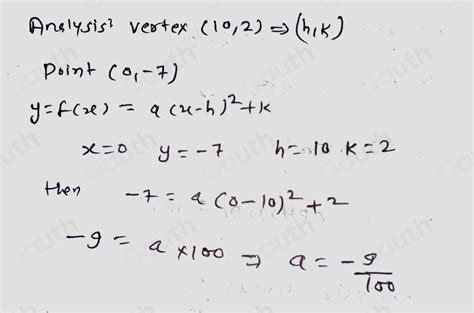 Analysis: vertex (10,2) ⇒ (h,k)
Point (0,-7)
y=f(x) = a(x-h)²+k
x=0 y=-7 h=10 k=2
then -7 = a(0-10)²+2
-9 = a×100 ⇒ a = -9/100